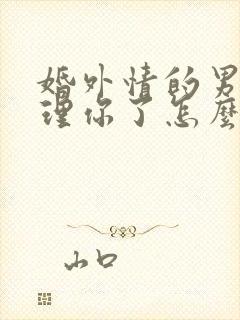 婚外情的男
理你了怎麼
山口